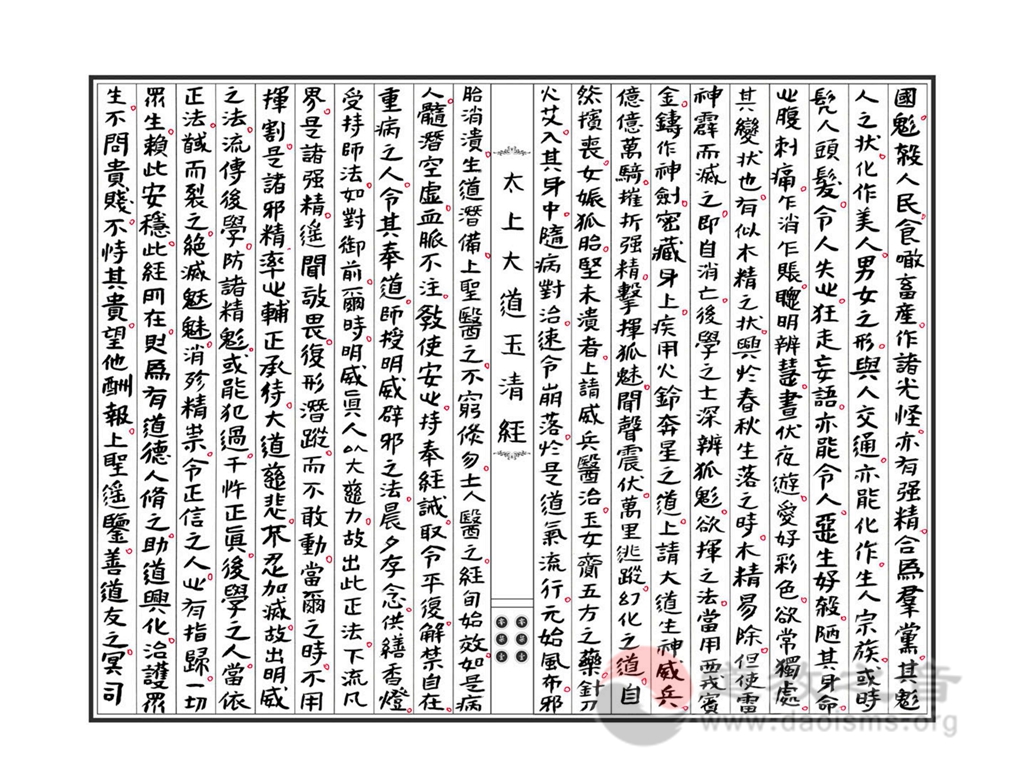 國魁殺人民食噉畜産作諸光怪亦有强精合爲羣黨其魁
人之状化作美人男女之形與人交通亦能化作生人宗族或時
髡人頭髮令人失心狂走妄語亦能令人惡生好殺陋其身命
心腹刺痛乍消乍脹聰明辨慧晝伏夜遊愛好彩色欲常獨處
其變状也有似木精之状興於春秋生落之時木精易除但使雷
神霹而滅之即自消亡後學之士深辨狐魁欲揮之法當用
金鑄作神劍密藏身上疾用火鈴奔星之道上請大道生神威兵
億億萬騎摧折强精擊揮狐魅聞聲震伏萬里逃蹤幻化之道自
然擯喪女娠狐胎堅未潰者上請威兵醫治玉女齎五方之藥針刀
火艾入其身中隨病對治速令崩落於是道氣流行元始風布邪
太上大道玉清經
胎消潰生道潛備上聖醫之不窮倏勿土人醫之經旬始效如是病
人髓潛空虛血脈不注教使安心持奉經誡取令平復解禁自在
重病之人令其奉道師授明威辟邪之法晨夕存念供繕香燈
受持師法如對御前爾時明威眞人以大慈力故出此正法下流凡
界是諸强精遥聞敬畏復形潛蹤而不敢動當爾之時不用
揮割是諸邪精率心輔正承待大道慈悲不忍加滅故出明威
之法流傳後學防諸精魁或能犯過干忤正眞後學之人當依
正法馘而裂之絕滅魃魅消殄精祟令正信之人心有指歸一切
眾生賴此安穩此経所在則爲有道德人脩之助道興化治護眾
生不問貴賤不恃其貴望他酬報上聖遥鑒善道友之冥司
道教之音
www.daoisms.org